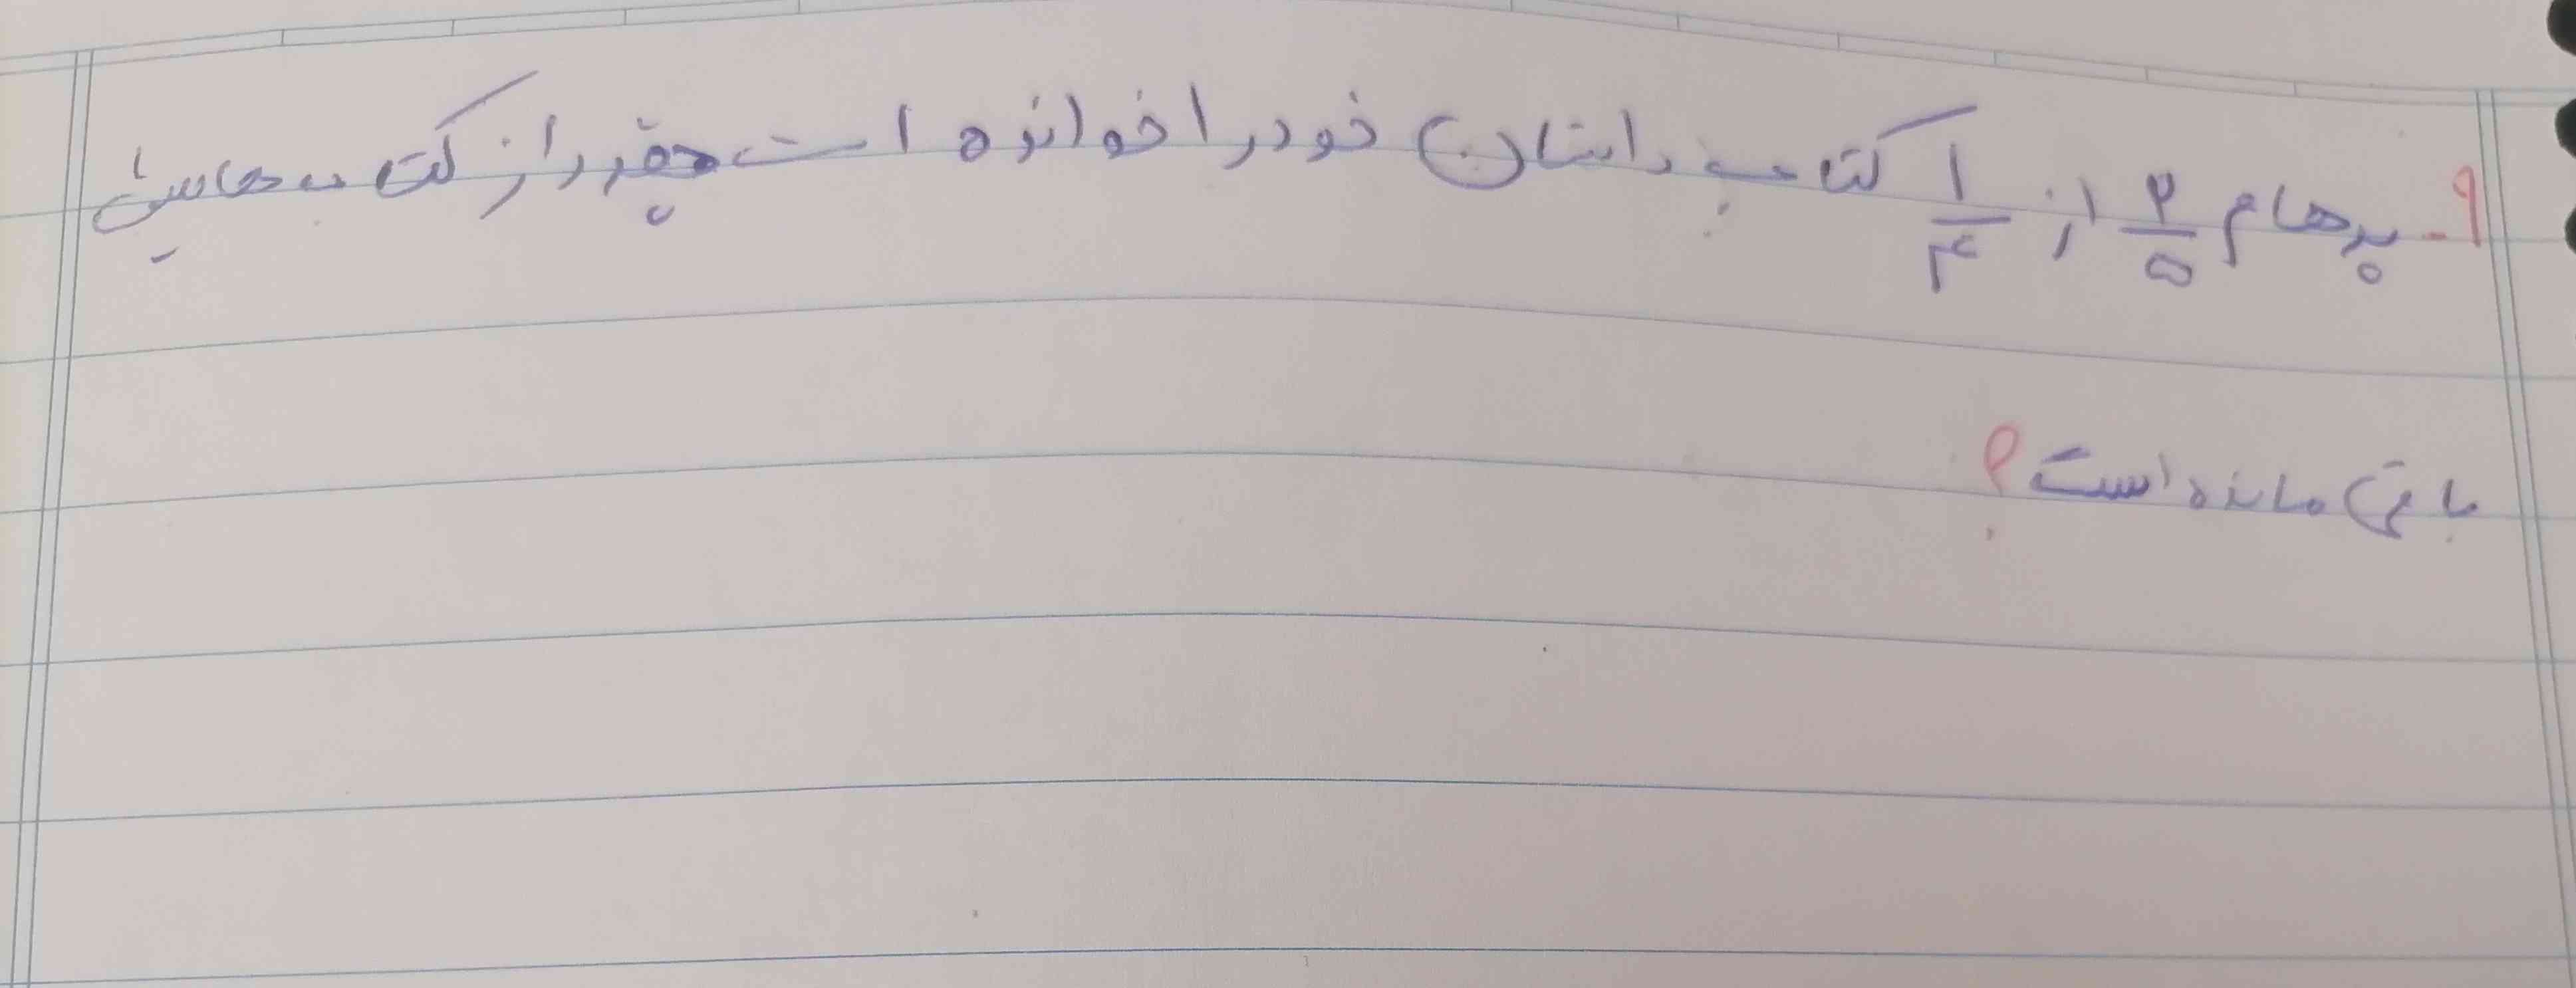 ۹- پرهام ۲/۵ از ۱/۴ کتاب داستان خود را خوانده است چقدر از کتاب هایش
باقی مانده است؟